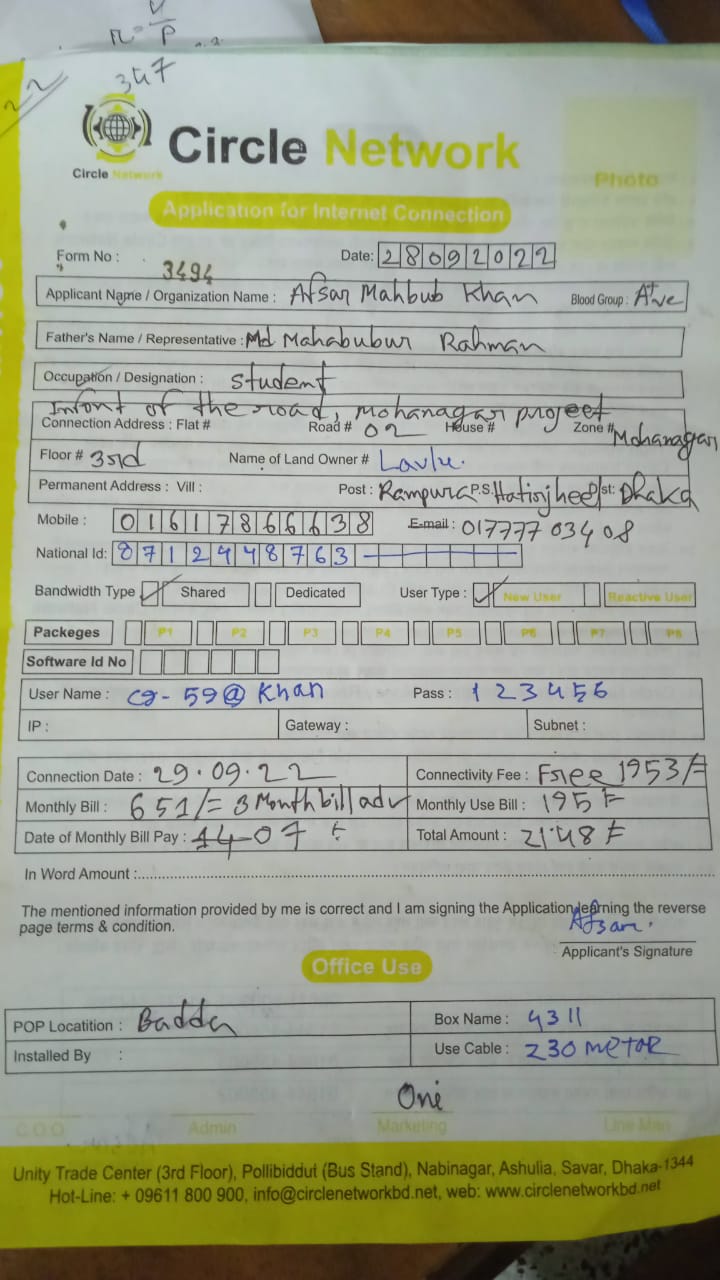 347
22
Circle Network
Circle Network
Photo
Application for Internet Connection
Form No : 3494 Date: 28092022
Applicant Name / Organization Name : Afsar Mahbub Khan Blood Group : A+ve
Father's Name / Representative : Md Mahabubur Rahman
Occupation / Designation : Student
Infont of the road, Mohanagar project
Connection Address : Flat # Road # 02 House # Zone # Mohanagar
Floor # 3rd Name of Land Owner # Lavlu.
Permanent Address : Vill : Post : Rampura P.S: Hatirjheel Dist: Dhaka
Mobile : 01617866638 E-mail : 01777703408
National Id: 8712448763
Bandwidth Type Shared Dedicated User Type : New User Reactive User
Packeges P1 P2 P3 P4 P5 P6 P7 P8
Software Id No
User Name : 59@Khan Pass : 123456
IP : Gateway : Subnet :
Connection Date : 29.09.22 Connectivity Fee : Free 1953/=
Monthly Bill : 651/= 3 Month bill adv Monthly Use Bill : 195
Date of Monthly Bill Pay : 07 Total Amount : 2148
In Word Amount :
The mentioned information provided by me is correct and I am signing the Application learning the reverse
page terms & condition.
Afsar.
Applicant's Signature
Office Use
POP Locatition : Badda Box Name : 4311
Installed By : Use Cable : 230 METOR
C.O.O Admin Marketing Line Man
Unity Trade Center (3rd Floor), Pollibiddut (Bus Stand), Nabinagar, Ashulia, Savar, Dhaka-1344
Hot-Line: + 09611 800 900, info@circlenetworkbd.net, web: www.circlenetworkbd.net